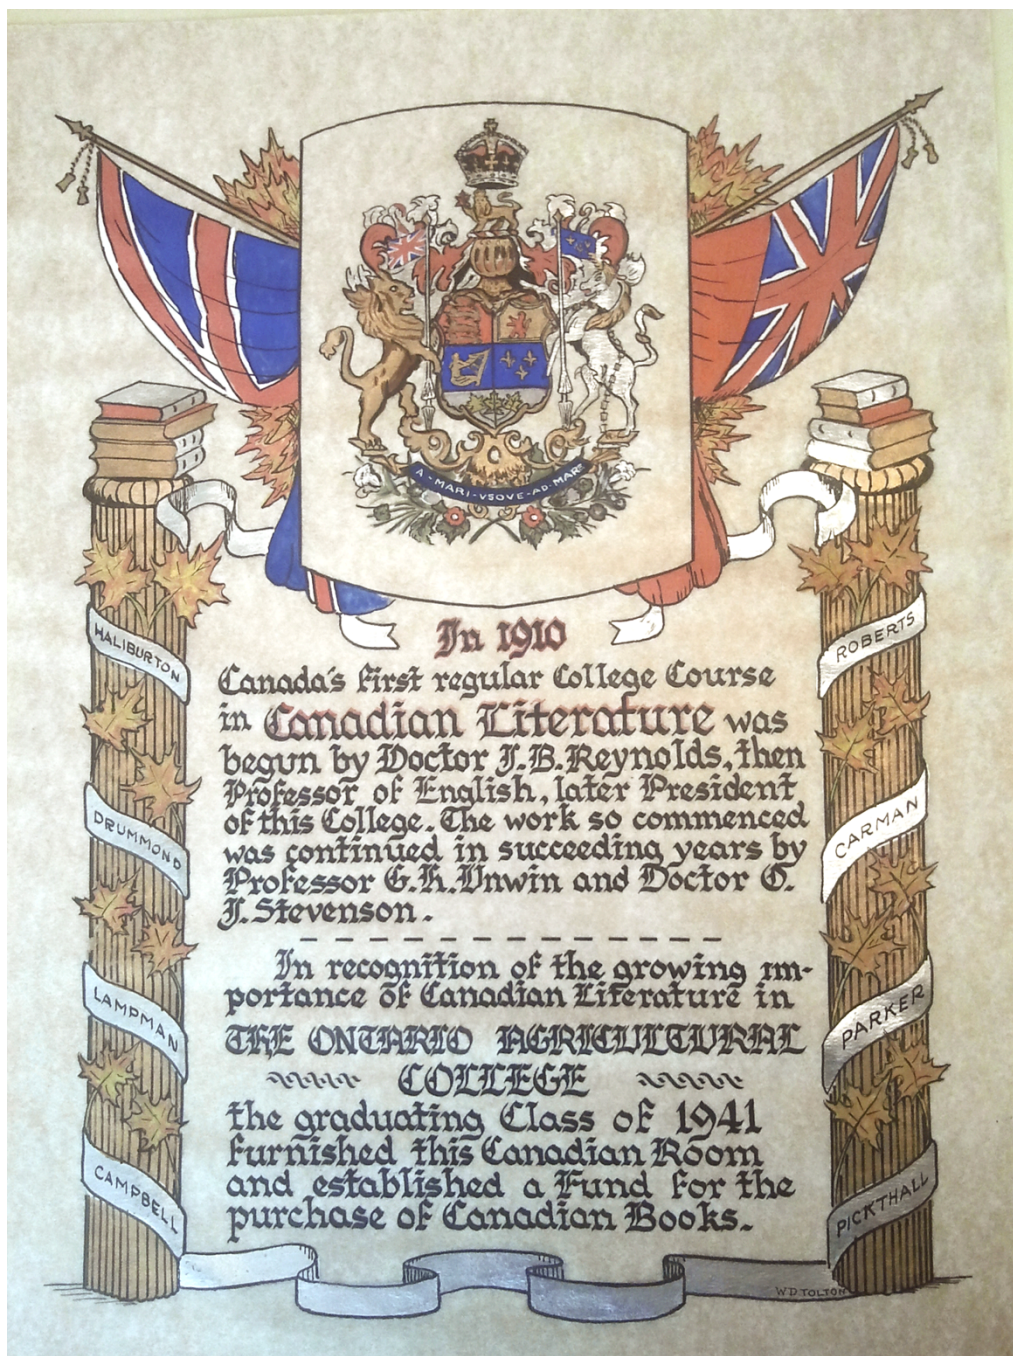 A·MARI·VSQVE·AD·MARE
HALIBURTON
DRUMMOND
LAMPMAN
CAMPBELL
In 1910
Canada's first regular College Course
in Canadian Literature was
begun by Doctor J.B.Reynolds, then
Professor of English, later President
of this College. The work so commenced
was continued in succeeding years by
Professor G.H.Unwin and Doctor O.
J.Stevenson.
In recognition of the growing im-
portance of Canadian Literature in
THE ONTARIO AGRICULTURAL
COLLEGE
the graduating Class of 1941
furnished this Canadian Room
and established a Fund for the
purchase of Canadian Books.
ROBERTS
CARMAN
PARKER
PICKTHALL
W D TOLTON